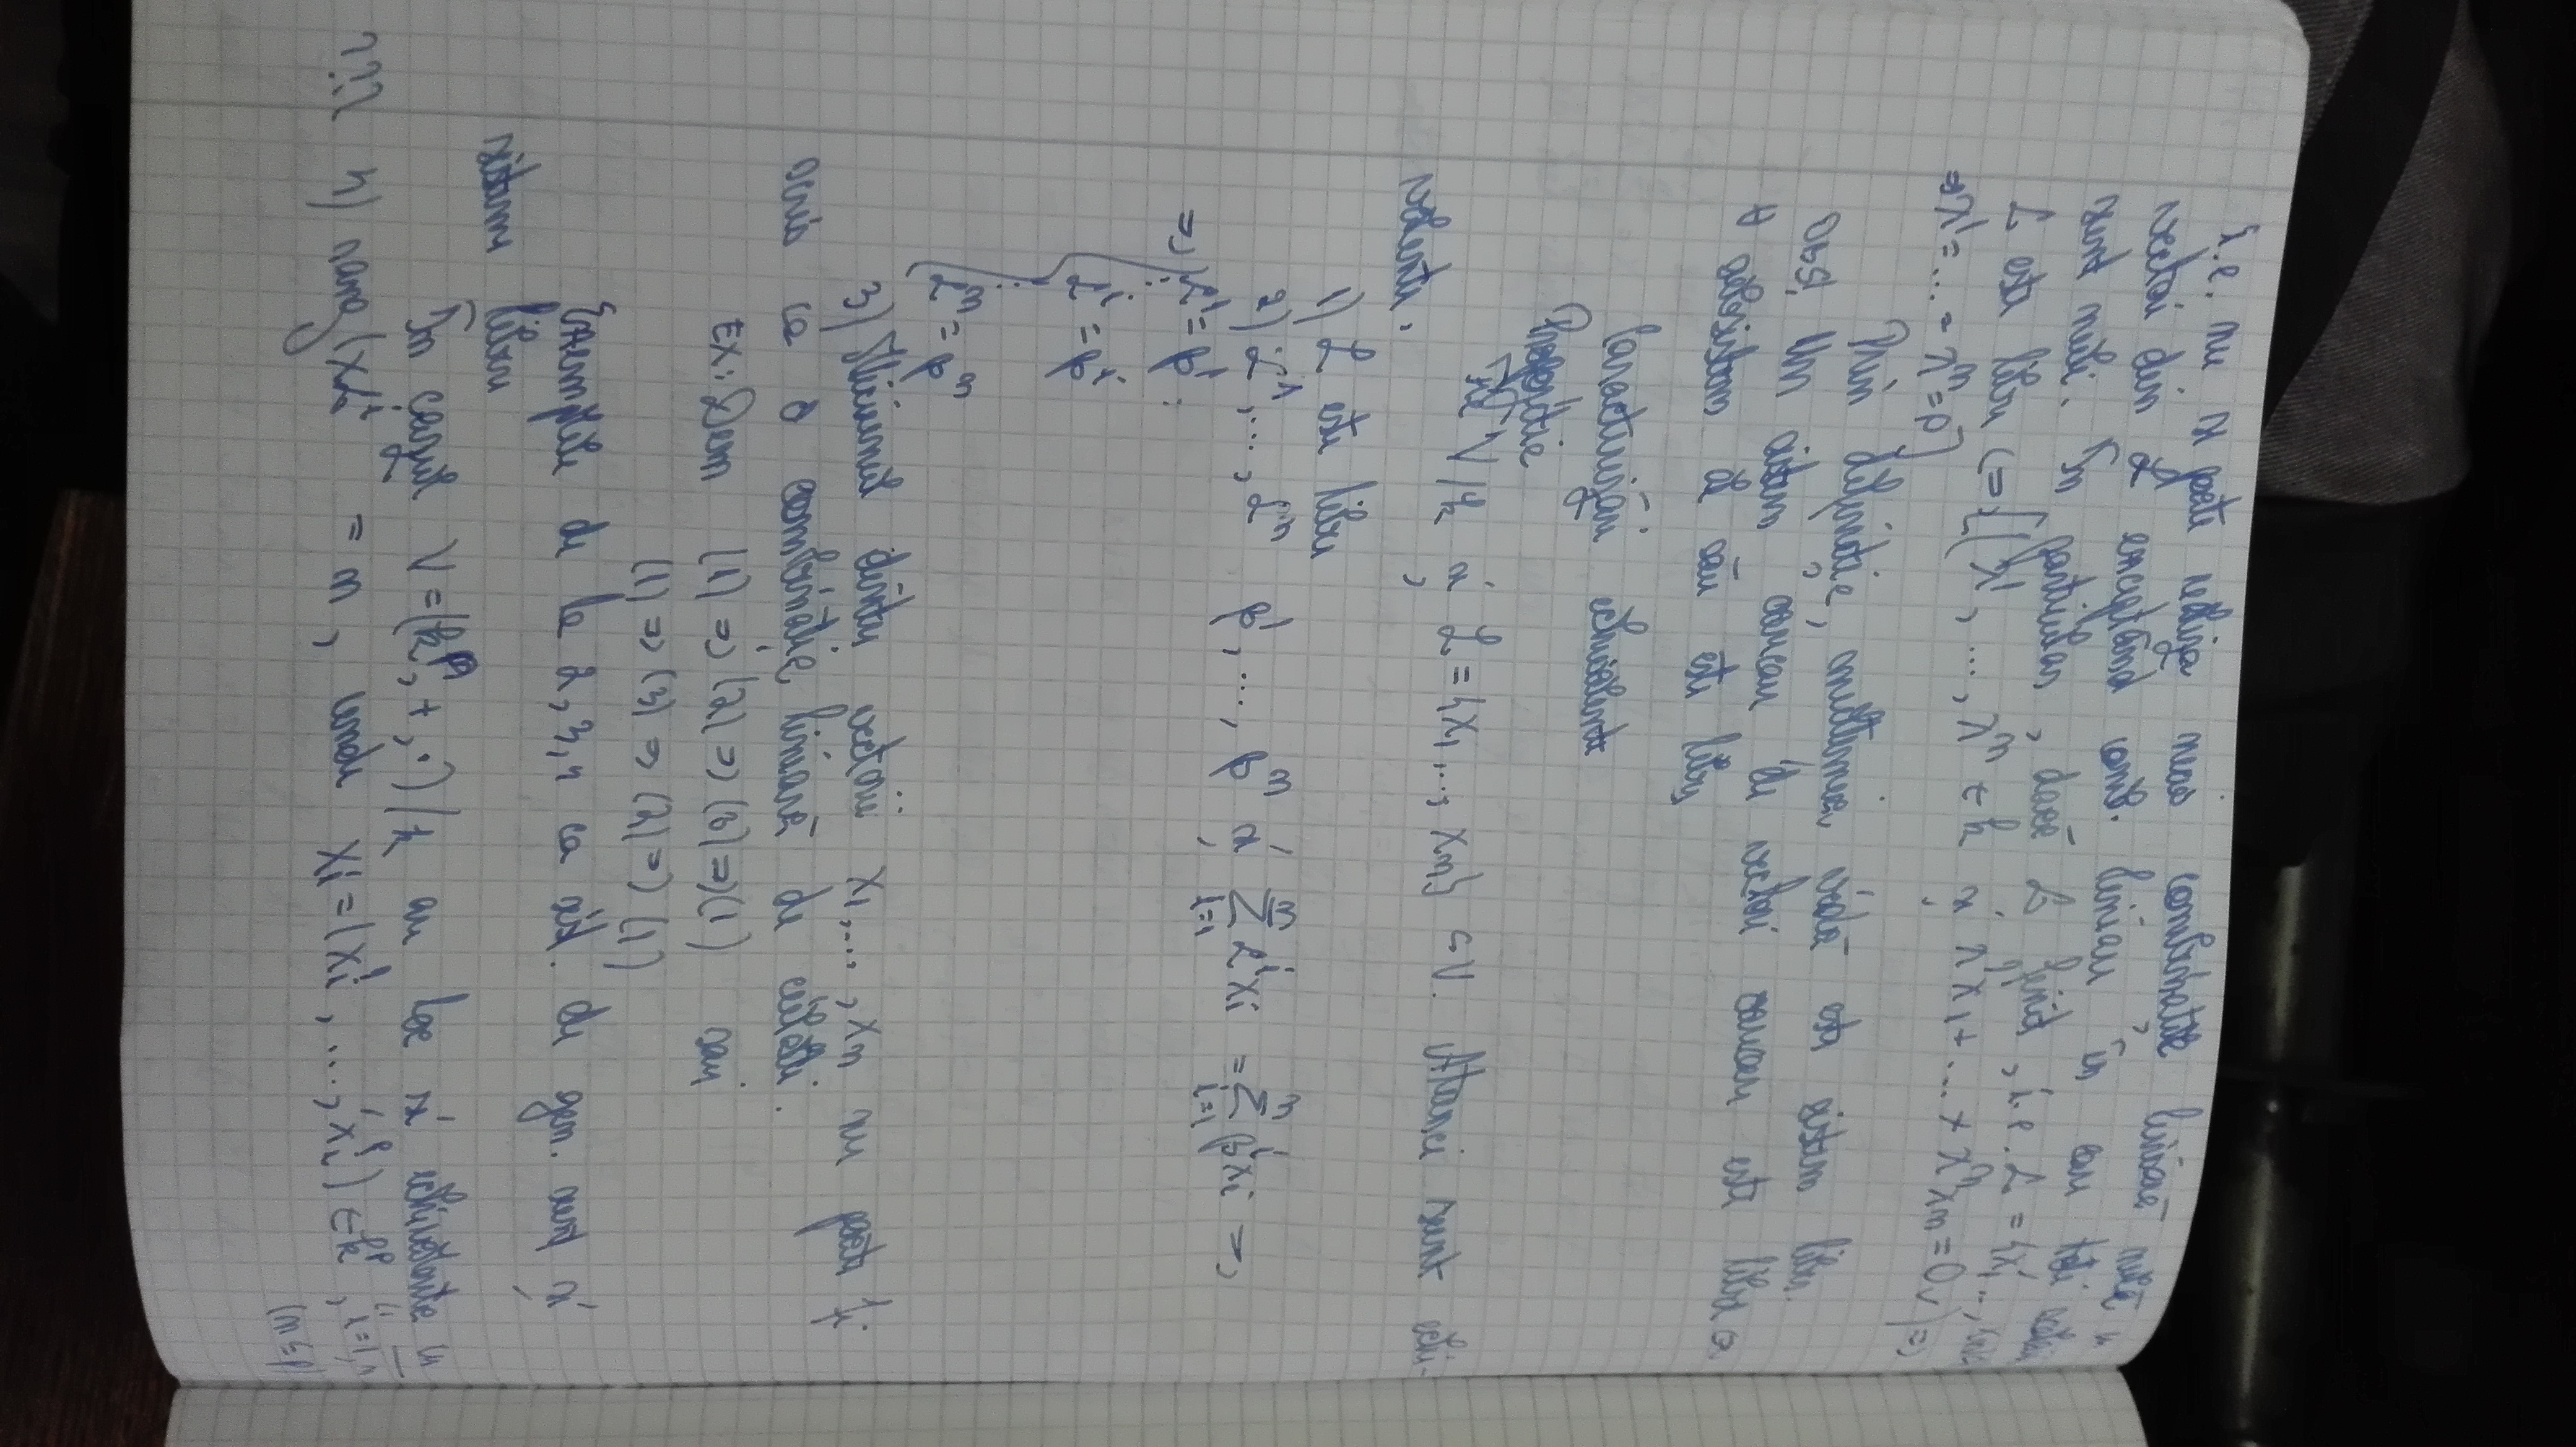 i.e. nu se poate realiza nicio combinație liniară nulă cu
vectori din L exceptând comb. liniară în care toți scalarii
sunt nuli. În particular, dacă L finit, i.e. L = {x1, ...,
L este liber (=> [(∀) λ^1, ..., λ^n ∈ k a.î. λ^1x1 + ... + λ^n xn = 0v) =>
=> λ^1 = ... = λ^n = 0]
Prin definiție, mulțimea vidă este sistem liber.
Obs: Un sistem oarecare de vectori oarecare este liber <=>
∀ subsistem al său este liber
Caracterizări echivalente
Propoziție
Fie V/k și L = {x1, ..., xn} ⊂ V. Atunci sunt echi-
valente:
1) L este liber
2) α^1, ..., α^n β^1, ..., β^n a.î. Σ_{i=1}^n α^i xi = Σ_{i=1}^n β^i xi =>
=> { α^1 = β^1
⋮
α^i = β^i
⋮
α^n = β^n
3) Niciunul dintre vectorii x1, ..., xn nu poate fi
scris ca o combinație liniară de ceilalți.
EX: Dem (1) => (2) => (3) => (1) sau
(1) => (3) => (2) => (1)
Exemplele de la 2, 3, 4 ca sist. de gen. sunt și
sisteme libere
În cazul V = (k^p, +, ·)/k au loc și echivalente cu
???? 4) rang (XL^t = n, unde xi = (xi^1, ..., xi^p) ∈ k^p, i=1,n
(n≤p)